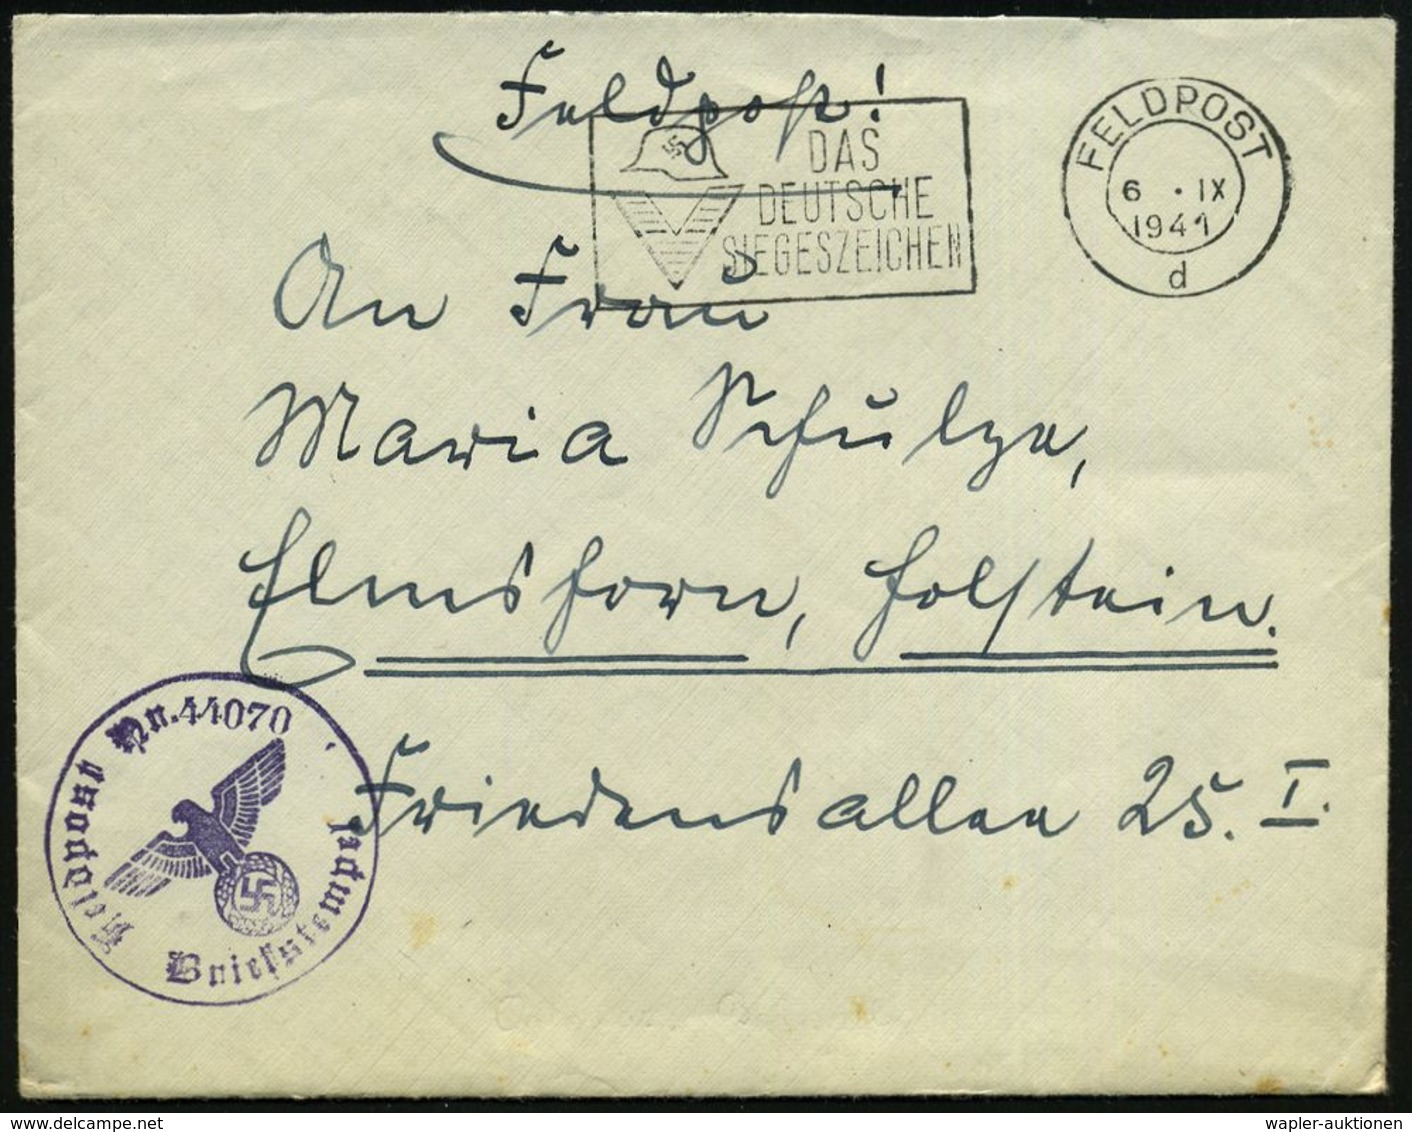 Feldpost!
DAS
DEUTSCHE
SIEGESZEICHEN
FELDPOST
6 . IX
1941
d
An Frau
Maria Schulze,
Elmshorn, Holstein.
Feldpost Nr. 44070
Briefstempel
Friedensallee 25. I.
delcampe.net
wapler-auktionen